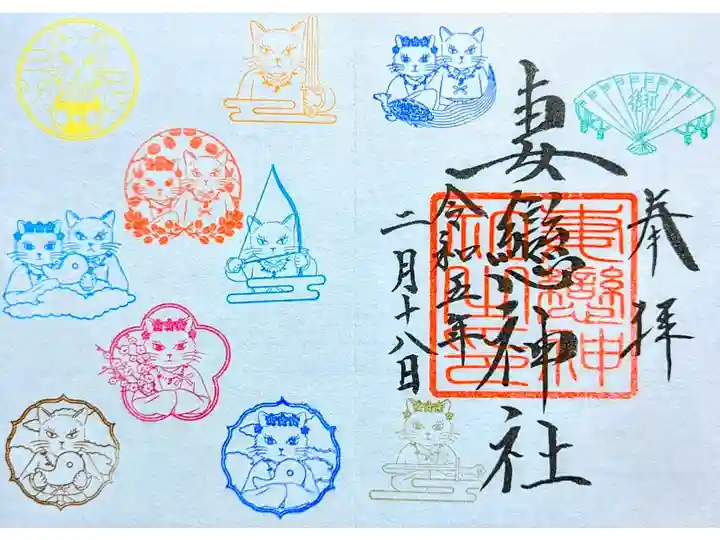 奉拝
妻戀神社
令和五年
二月十八日
妻戀神
社之印